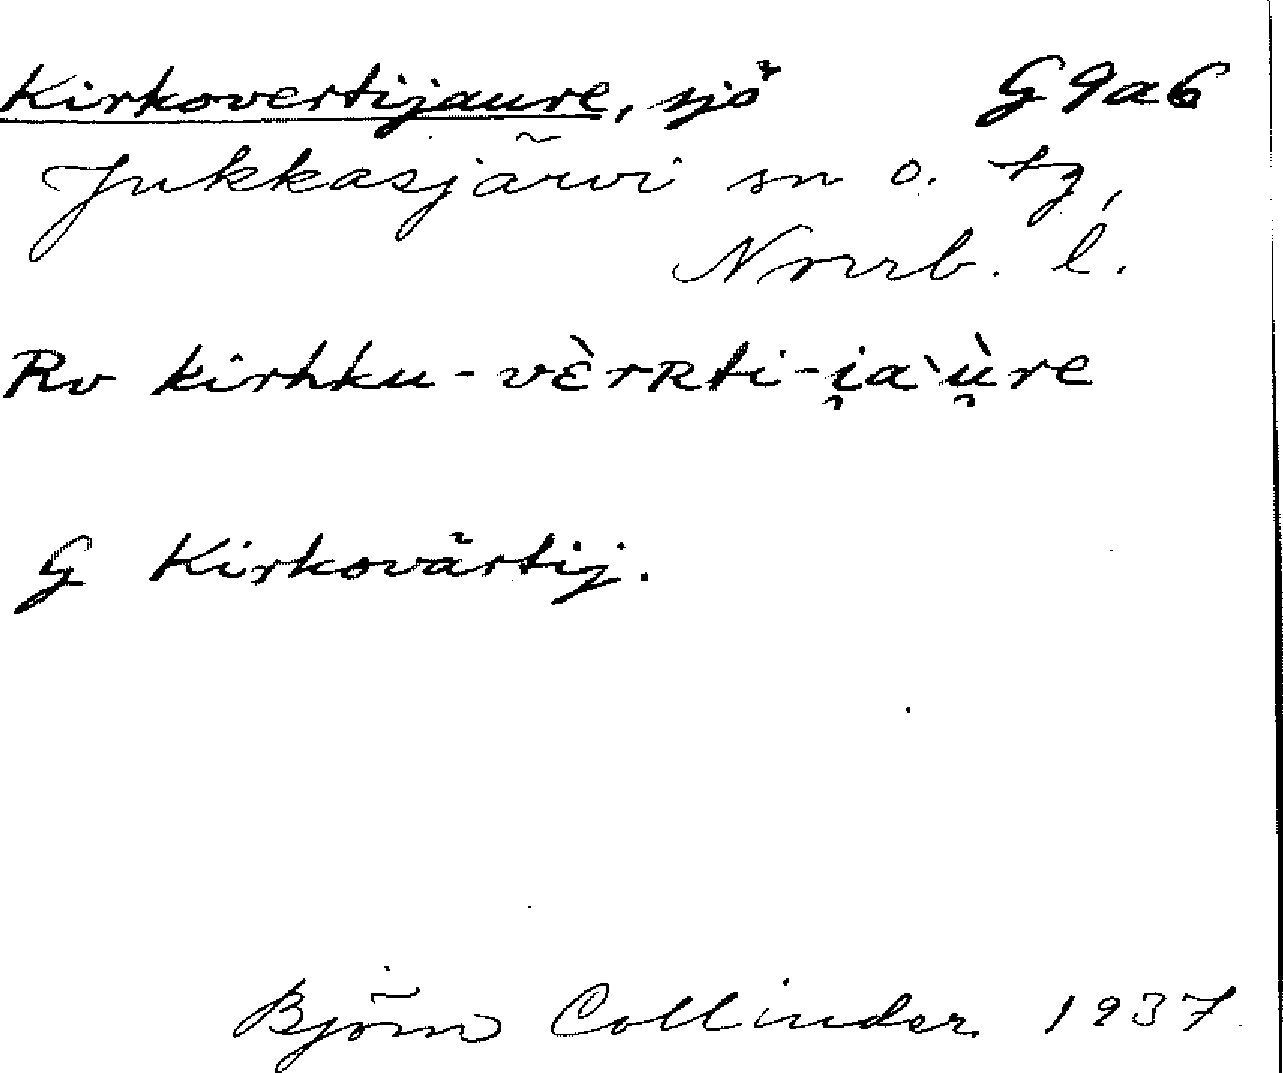 Kirkovertijaure, sjö G9a6
Jukkasjärvi sn o. tg,
Norrb. l.
Rv kirhku-vὲrRti-i̯a`ù̯re
G Kirkovärtij.
Björn Collinder 1937